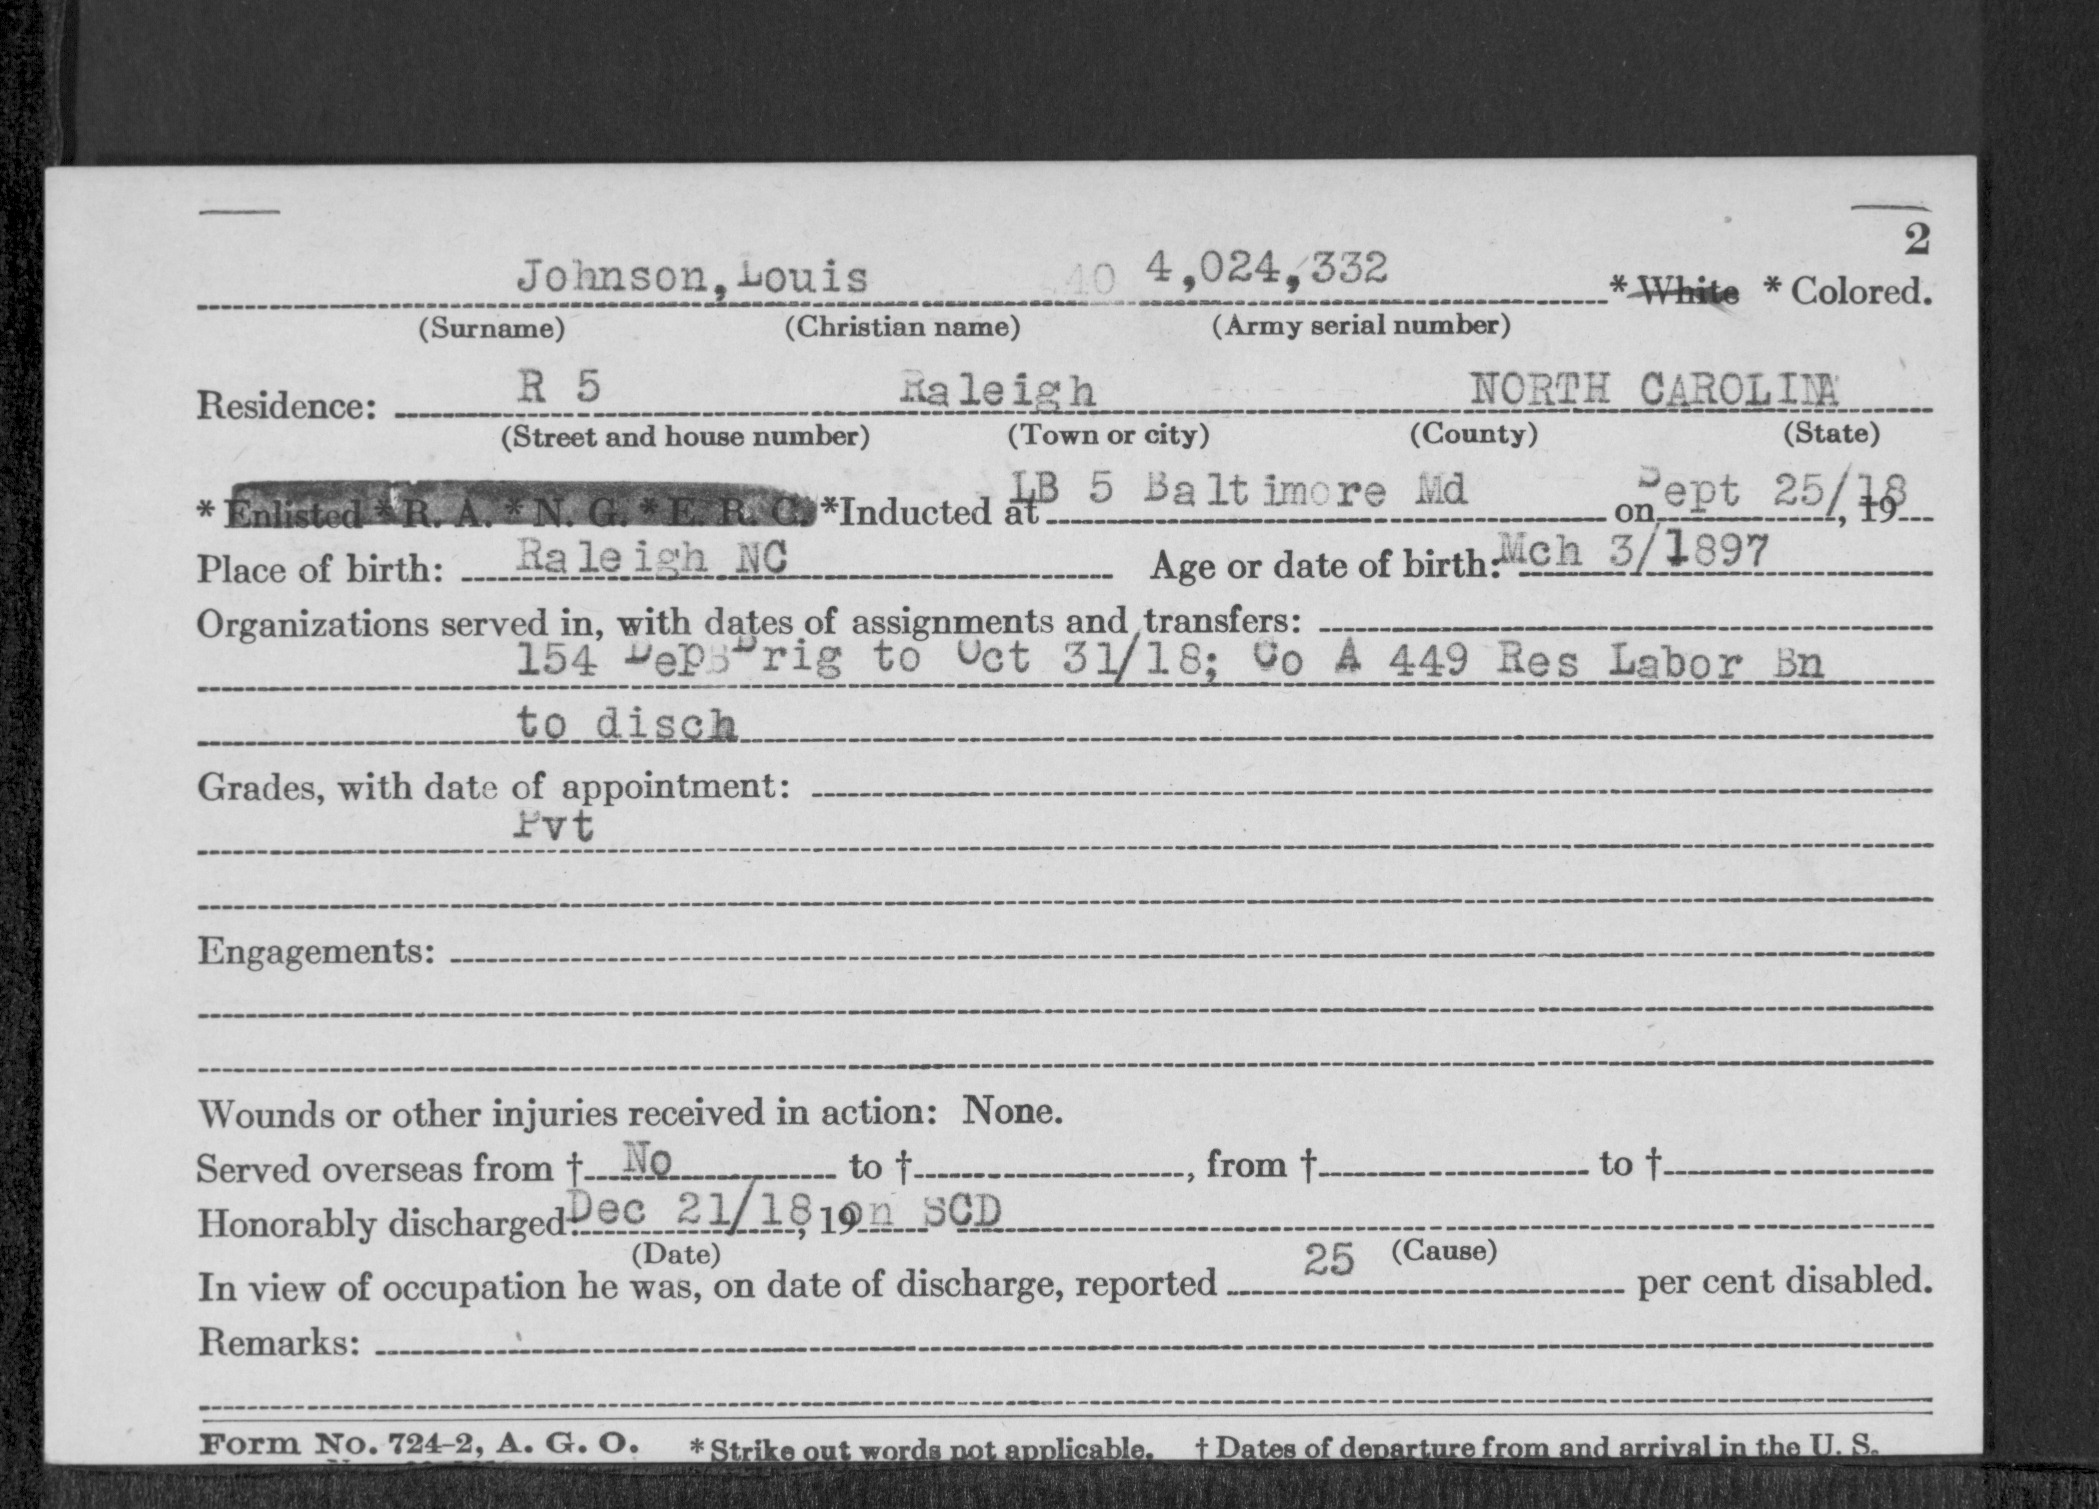 2
Johnson, Louis 40 4,024,332 * White * Colored.
(Surname) (Christian name) (Army serial number)
Residence: R 5 Raleigh NORTH CAROLINA
(Street and house number) (Town or city) (County) (State)
* Enlisted * R. A. * N. G. * E. R. C. *Inducted at LB 5 Baltimore Md on Sept 25/18, 19
Place of birth: Raleigh NC Age or date of birth: Mch 3/1897
Organizations served in, with dates of assignments and transfers:
154 Dep Brig to Oct 31/18; Co A 449 Res Labor Bn
to disch
Grades, with date of appointment:
Pvt
Engagements:
Wounds or other injuries received in action: None.
Served overseas from † No to †, from † to †
Honorably discharged: Dec 21/18, 19 on SCD
(Date) (Cause)
In view of occupation he was, on date of discharge, reported 25 per cent disabled.
Remarks:
Form No. 724-2, A. G. O. * Strike out words not applicable. † Dates of departure from and arrival in the U. S.